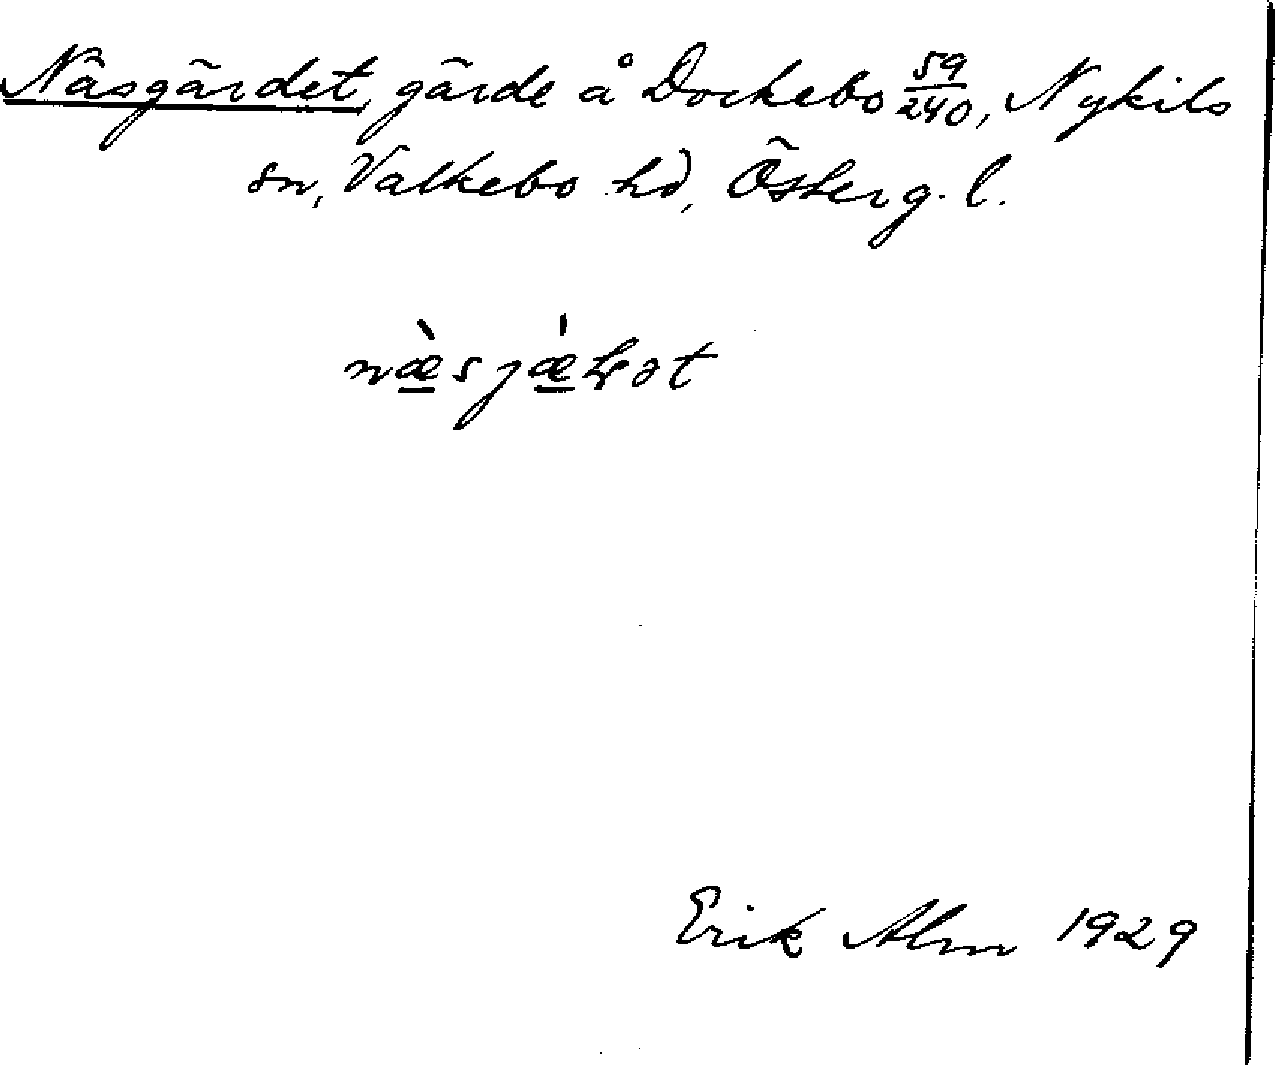 Näsgärdet, gärde å Dockebo 59/240, Nykils
sn, Valkebo hd, Österg. l.
Erik Alm 1929